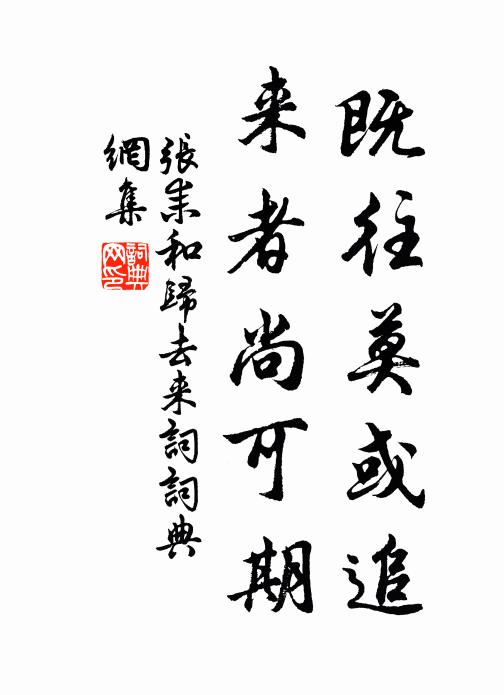 既往莫或追
来者尚可期
張耒和歸去来詞詞典
網集
詞典
网印